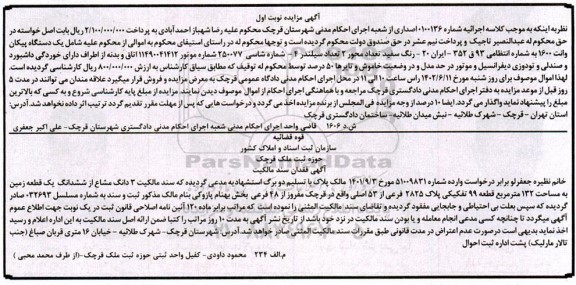 آگهی مزایده نوبت اول
نظر به اینکه به موجب کلاسه اجرائیه شماره ۰۱۰۰۱۳۶ صداری از شعبه اجرای احکام مدنی شهرستان قرچک محکوم علیه رضا شهباز احمدآبادی به پرداخت ۲/۱۰۰/۰۰۰/۰۰۰ ریال بابت اصل خواسته در
حق محکوم له عبدالنصیر تاجیک و پرداخت نیم عشر در حق صندوق دولت محکوم گردیده است و توجها محکوم له در راستای استیفای محکوم به اموالی از محکوم علیه شامل یک دستگاه پیکان
وانت ۱۶۰۰ به شماره انتظامی ۹۳ ق ۳۵۲ - ایران ۲۰ - رنگ سفید تعداد محور ۲ تعداد سیلندر ۴ - شماره شاسی ۲۵۰۰۷۷ شماره موتور ۱۱۴۹۰۰۴۱۴۱۲ اتاق و بدنه از اطراف دارای خوردگی داشبورد
و صندلی و تودوزی دیفرانسیل و موتور در حد مدل و در وضعیت خاموش و تایرها ۵۰ درصد توسط محکوم له توقیف که مطابق سیاق کارشناس به ارزش ۸۰۰/۰۰۰/۰۰۰ ریال کارشناسی گردیده است.
لهذا اموال موصوف برای روز شنبه مورخ ۱۴۰۲/۶/۱۱ راس ساعت ۱۰ الی ۱۱ در محل اجرای احکام مدنی دادگاه عمومی قرچک به معرض مزایده و فروش قرار میگیرد علاقه مندان می توانند در مدت ۵
روز قبل از موعد مزایده به دفتر اجرای احکام مدنی دادگستری قرچک مراجعه و با هماهنگی اجرای احکام از اموال موصوف دیدن نمایند. مزایده از مبلغ پایه کارشناسی شروع و به کسی که بالاترین
مبلغ را پیشنهاد نماید واگذار می گردد. ایضا ۱۰ درصد از وجه مزایده فی المجلس از برنده مزایده اخذ می گردد و درخواست هایی که پس از مهلت مقرر تقدیم گردد ترتیب اثر داده نخواهد شد. آدرس:
استان تهران - قرچک - شهرک طلائیه - نبش میدان طلائیه - ساختمان دادگستری قرچک
ش.د ۱۶۰۶ قاضی واحد اجرای احکام مدنی شعبه اجرای احکام مدنی دادگستری شهرستان قرچک - علی اکبر جعفری
قوه قضائیه
سازمان ثبت اسناد و املاک کشور
حوزه ثبت ملک قرچک
آگهی فقدان سند مالکیت
خانم نظیره جعفرلو برابر درخواست وارده شماره ۵۱۰۰۹۸۳۱ مورخ ۱۴۰۱/۹/۳ مالک پلاک با تسلیم دو برگ استشهادیه مدعی گردیده که سند مالکیت ۳ دانگ مشاع از ششدانگ یک قطعه زمین
به مساحت ۱۳۲ مترمربع قطعه ۹۹ تفکیکی پلاک ۲۸۲۵ فرعی از ۵۳ اصلی واقع در قرچک مفروز از ۴۸ فرعی بخش بهنام پازوکی بنام مالک مذکور ثبت و سند به شماره مسلسل ۳۲۶۹۳ صادر
گردیده که سپس بعلت بی احتیاطی و جابجایی مفقود گردیده و تقاضای سند مالکیت المثنی را نموده است که مراتب برابر ماده ۱۲۰ آئین نامه اصلاحی قانون ثبت در یک نوبت جهت اطلاع عموم
آگهی میگردد تا چنانچه کسی مدعی انجام معامله و یا بودن سند مالکیت در نزد خود باشد از تاریخ نشر آگهی به مدت ۱۰ روز مراتب را کتبا ضمن ارائه اصل سند مالکیت به این اداره اعلام و رسید
اخذ نماید بدیهی است درصورت عدم اعتراض در مدت قانونی طبق مقررات سند مالکیت المثنی صادر خواهد شد. آدرس: شهرستان قرچک - شهرک طلائیه - خیابان ۱۶ متری قربان صباغ (جنب
تالار مارلیک) پشت اداره ثبت احوال
م.الف ۲۳۴ محمود داودی - کفیل واحد ثبتی حوزه ثبت ملک قرچک - (از طرف محمد محبی)